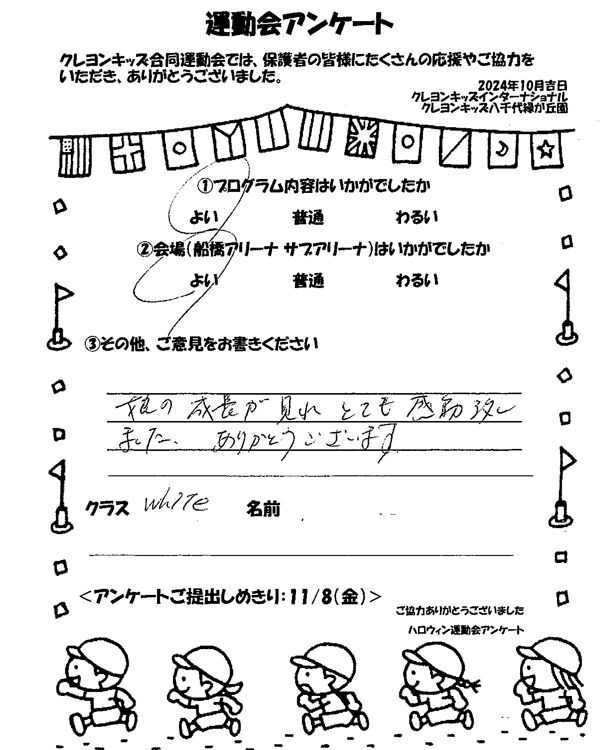 運動会アンケート
クレヨンキッズ合同運動会では、保護者の皆様にたくさんの応援やご協力を
いただき、ありがとうございました。
2024年10月吉日
クレヨンキッズインターナショナル
クレヨンキッズ八千代緑が丘園
①プログラム内容はいかがでしたか
よい 普通 わるい
②会場(船橋アリーナ サブアリーナ)はいかがでしたか
よい 普通 わるい
③その他、ご意見をお書きください
娘の 成長が 見れ とても 感動致し
ました、 ありがとうございます
クラス White 名前
<アンケートご提出しめきり:11/8(金)>
ご協力ありがとうございました
ハロウィン運動会アンケート